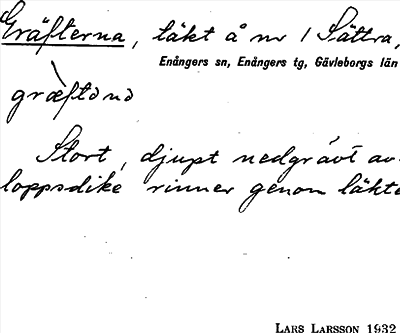 Gräfterna, täkt å nr 1 Sättra,
Enångers sn, Enångers tg, Gävleborgs län
græ̀ftəɳɑ
Stort, djupt nedgrävt av-
loppsdike rinner genom täkte
LARS LARSSON 1932